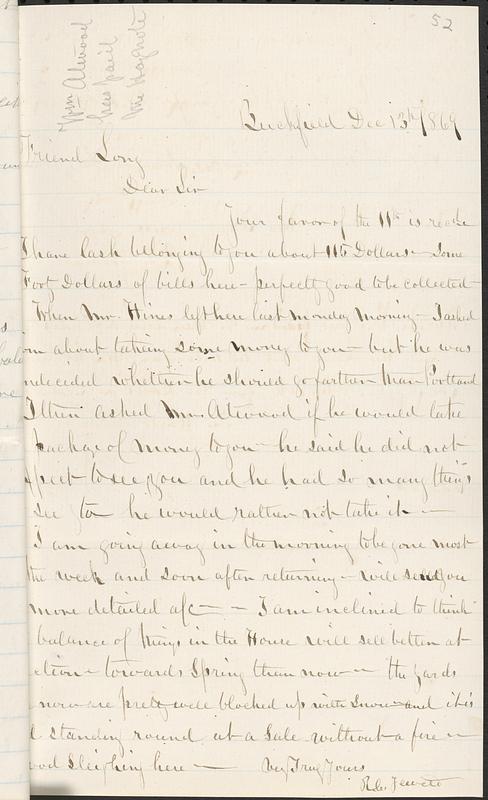 52
Wm Atwood
has paid
me Wagnote
Buckfield Dec 13th/1869
Friend Long
Dear Sir
Your favor of the 11th is recd
I have Cash belonging to you about 115 Dollars - Some
Forty Dollars of bills here - perfectly good to be collected
When Mr. Hines left here last Monday Morning - I asked
him about taking some money to you - but he was
undecided whether he should go farther than Portland
I then asked Mr. Atwood if he would take
package of money to you - he said he did not
expect to see you and he had so many things
see to he would rather not take it -
I am going away in the morning to be gone most
the week and soon after returning - will send you
more detailed a/c - - I am inclined to think
balance of things in the House will sell better at
Auction - towards Spring than now - the yards
now are pretty well blocked up with Snow - and it is
standing round at a Sale without a fire -
good Sleighing here - Very Truly Yours